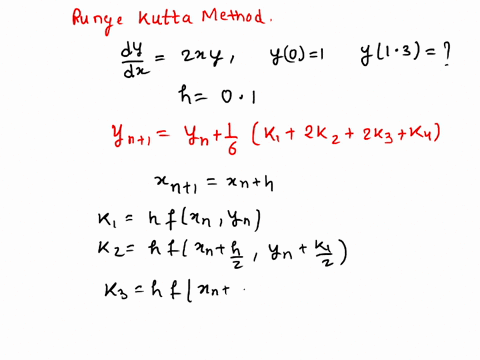 Runge Kutta Method.
dy/dx = 2xy, y(0)=1 y(1.3) = ?
h = 0.1
y_{n+1} = y_n + 1/6 (K_1 + 2K_2 + 2K_3 + K_4)
x_{n+1} = x_n + h
K_1 = h f(x_n, y_n)
K_2 = h f(x_n + h/2, y_n + K_1/2)
K_3 = h f(x_n +